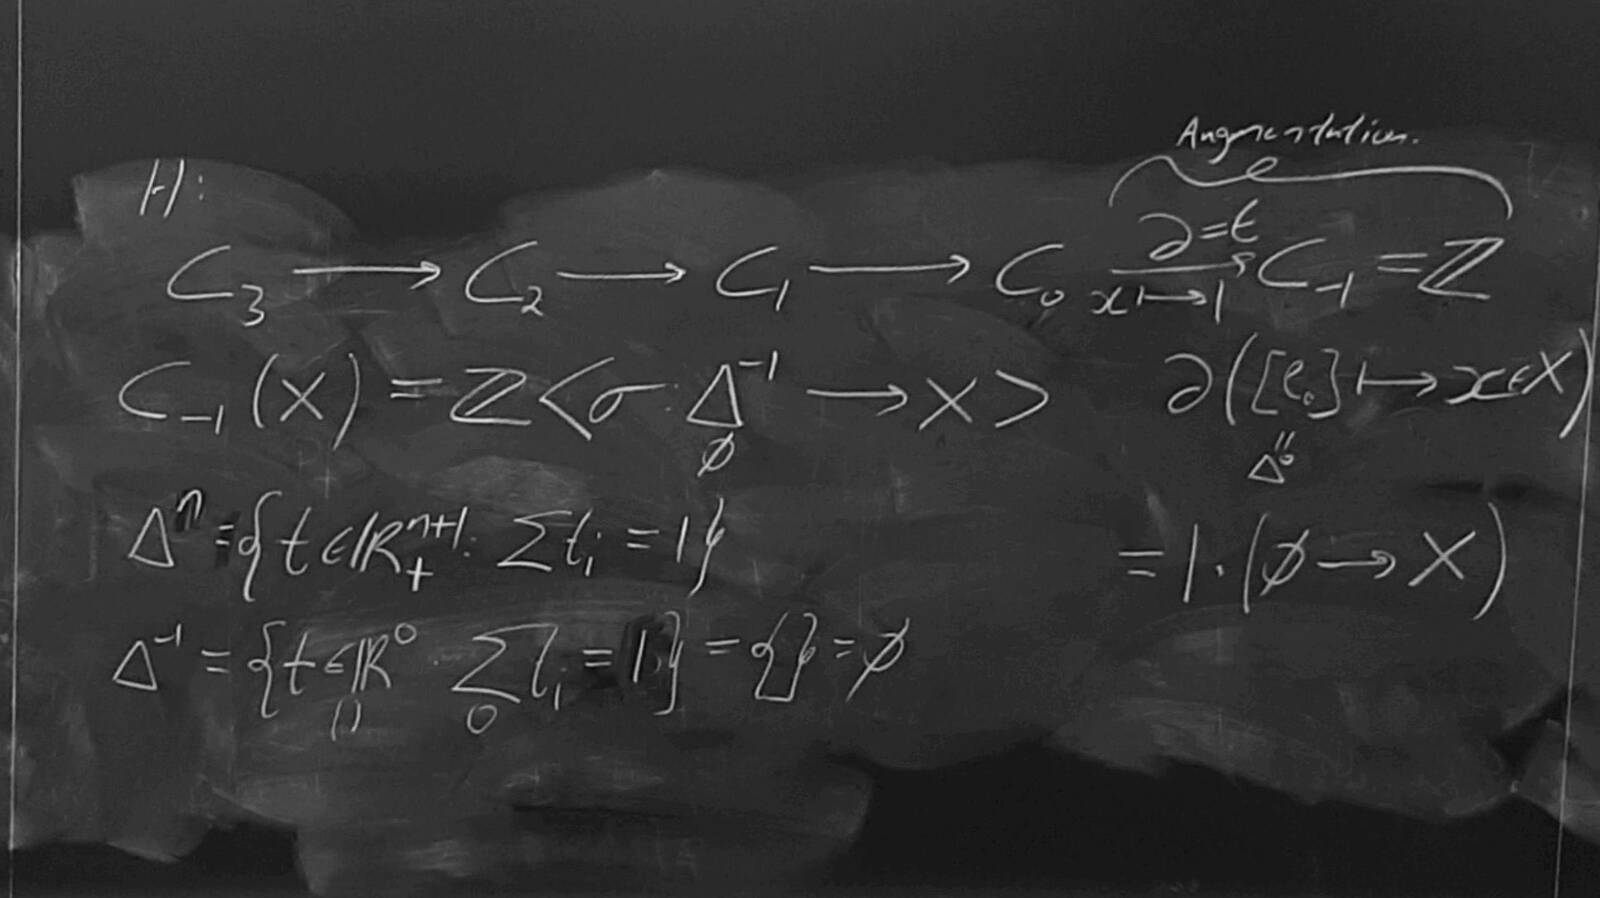 Augmentation.
H:
C₃ ⟶ C₂ ⟶ C₁ ⟶ C₀ ⟶ C₋₁ = ℤ
∂=ε
x ↦ 1
C₋₁(X) = ℤ<σ: Δ⁻¹ ⟶ X>
∅
∂([e₀] ↦ x∈X)
"
Δ⁰
Δⁿ = {t∈ℝ₊ⁿ⁺¹: Σtᵢ = 1}
= 1·(∅ → X)
Δ⁻¹ = {t∈ℝ⁰ : Σtᵢ = 1} = {} = ∅
0